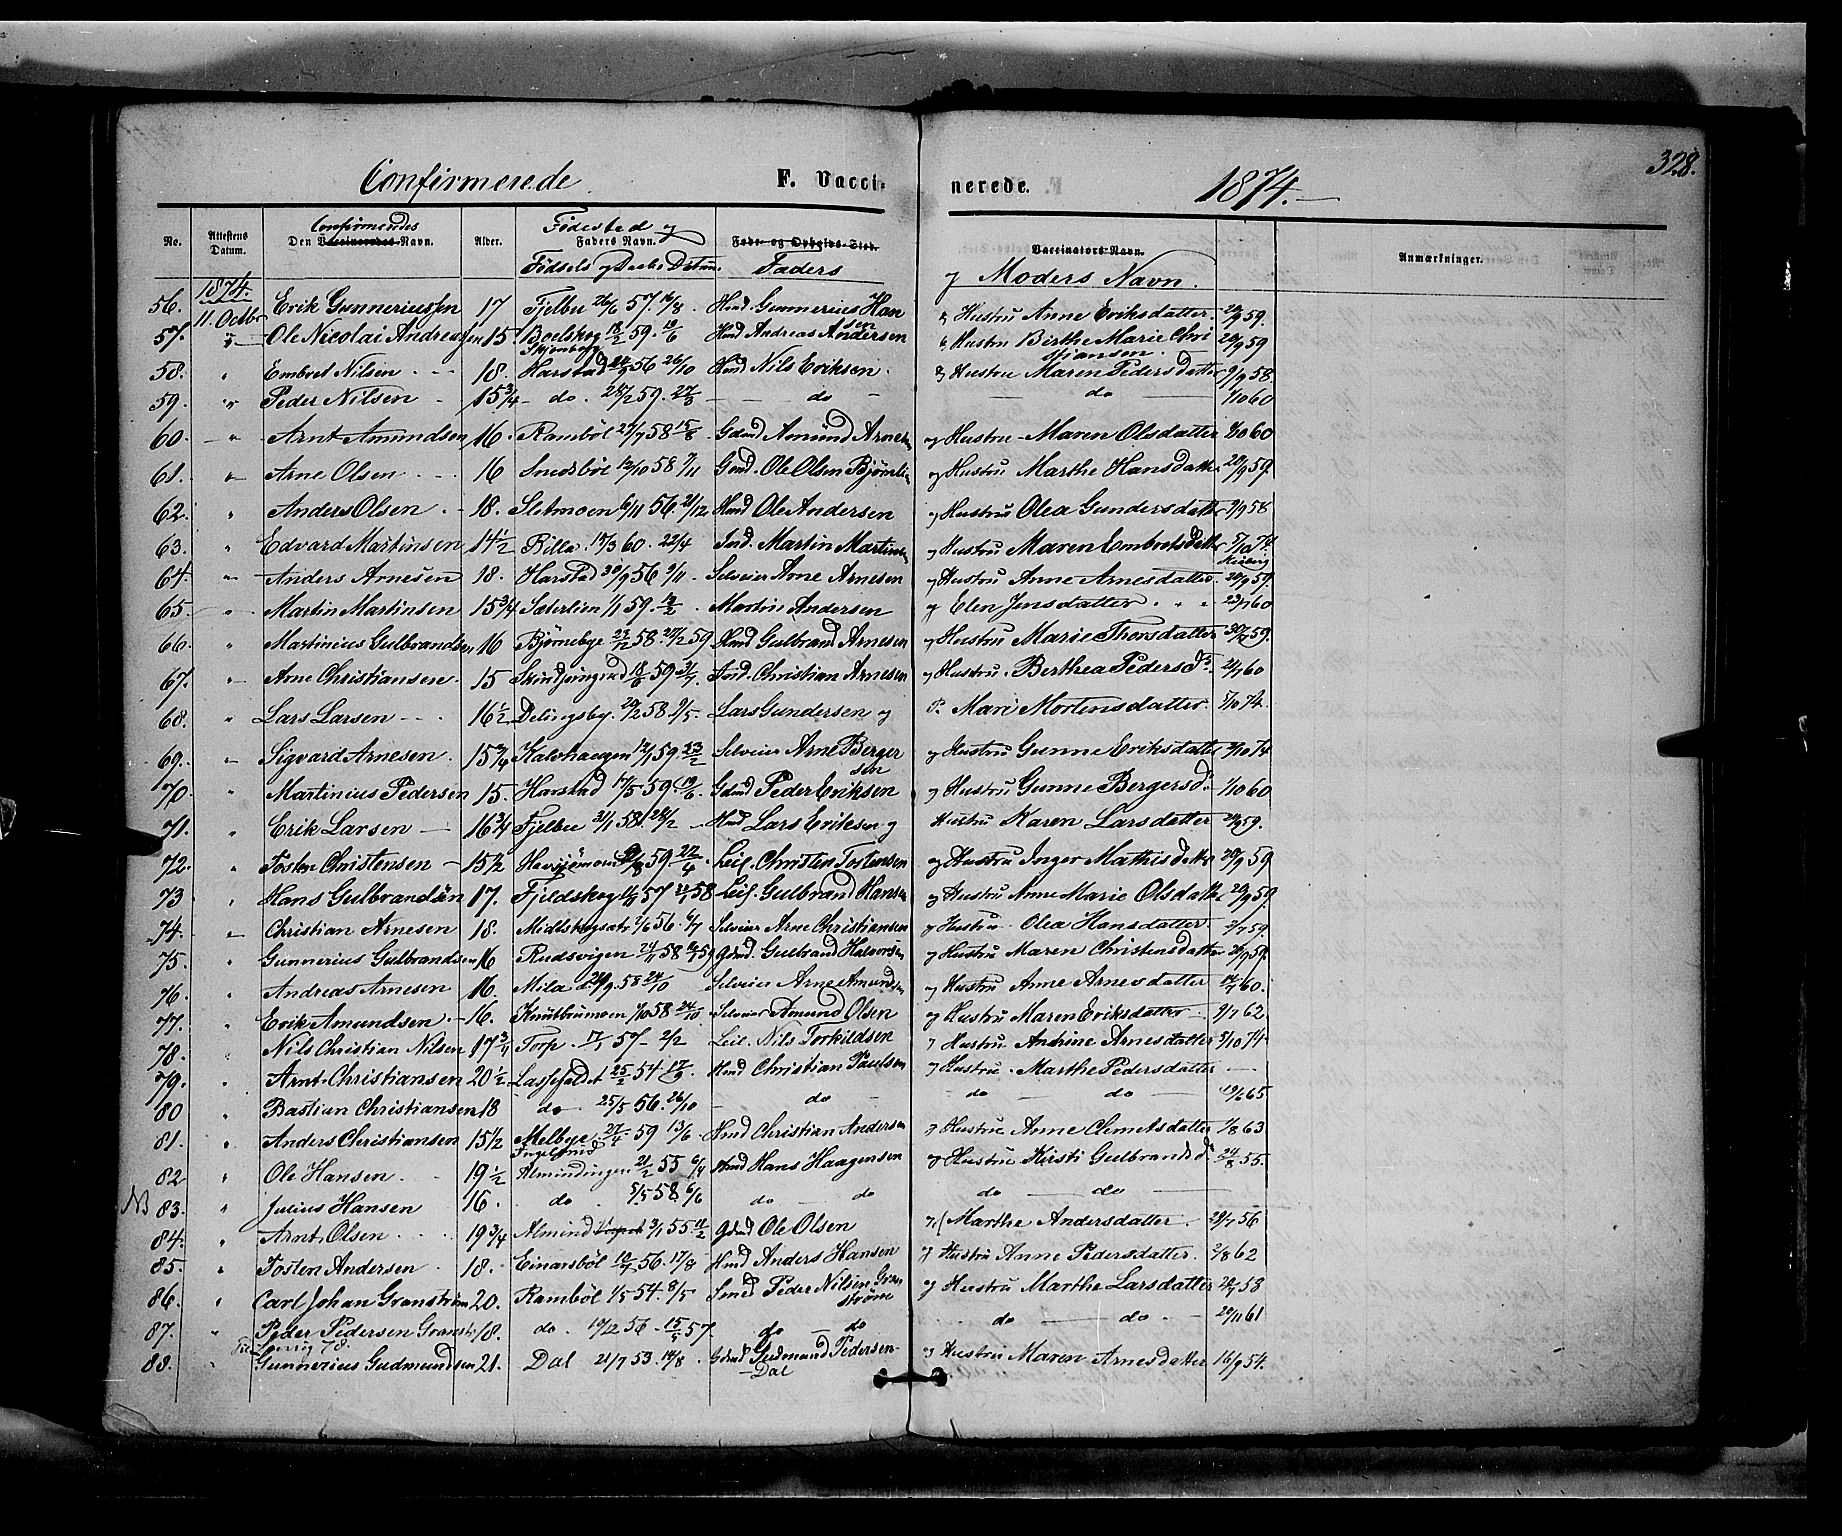 328.
Confirmerede F. Vacci- nerede. 1874.
No. Attestens Datum. Confirmendes Den Vaccineredes Navn. Alder. Fødested og Faders Navn. Fødsels og Daabs Datum. Føde- og Opholds-Sted. Faders Vaccinators Navn. og Moders Navn. Anmærkninger.
1874.
56. 11. Octbr Erik Gunneriussen 17 Fjelbu 26/6 57. 16/8 Hmd. Gunnerius Hansen & Hustru Anne Eriksdatter 59.
57. " Ole Nicolai Andreassen 15 Boelskog 18/2 59. 19/6 Hmd Andreas Andersen & Hustru Birthe Marie Christiansen. 59
58. " Embret Nilsen 18. Harstad 24/9 56 26/10 Hmd Nils Eriksen & Hustru Maren Pedersdatter 9/9 58.
59. " Peder Nilsen 15 3/4 do. 59. do do 60
60. " Arnt Amundsen 16. Rambøl 58 15/8 Gdmd Amund Arnesen og Hustru Maren Olsdatter 60
61. " Arne Olsen 16 12/10 58 Gmd. Ole Olsen Bjørnli og Hustru Marthe Hansdatter 59.
62. " Anders Olsen 18. Sletmoen 6/11 56. 21/12 Hmd Ole Andersen og Hustru Olea Gundersdatter 9/9 58
63. " Edvard Martinsen 14 1/2 Billa 60. 22/4 Ind. Martin Martinsen og Hustru Maren Embretsdatter 5/10 74.
64. " Anders Arnesen 18. Harstad 56 9/11 Selveier Arne Arnesen og Hustru Anne Arnesdatter 59.
65. " Martin Martinsen 15 3/4 Sæterlien 1/1 59. Martin Andersen og Elen Jensdatter 60
66. " Martinius Gulbrandsen 16 Bjørnebye 58. 59 Hmd Gulbrand Arnesen og Hustru Marie Thorsdatter 59.
67. " Arne Christiansen 15 59 Ind. Christian Arnesen og Hustru Berthea Pedersdr 60
68. " Lars Larsen 16 1/2 Delingsbg. 58. 9/5. Lars Gundersen og P. Mari Mortensdatter 5/10 74.
69. " Sigvard Arnesen 15 3/4 Kalvhaugen 59. 23/2 Selveier Arne Bergersen og Hustru Gunne Eriksdatter 74
70. " Martinius Pedersen 15. Harstad 17/5 59. 19/6 Gdmd Peder Eriksen og Hustru Gunne Bergersdr 60
71. " Erik Larsen 16 3/4 Fjelbu 58. Hmd Lars Eriksen og Hustru Karen Larsdatter 59.
72. " Tosten Christensen 15 1/2 59. Leil. Christen Tostensen og Hustru Inger Mathisdatter 59
73 " Hans Gulbrandsen 17. Fjeldskog 57 58 Leil. Gulbrand Hansen og Hustru Anne Marie Olsdatter 59
74. " Christian Arnesen 18. Midtskogsætr 56. 6/7 Selveier Arne Christiansen og Hustru Olea Hansdatter 59.
75. " Gunnerius Gulbrandsen 16 Rudsvigen 24/11 58 59 Gdmd. Gulbrand Halvorsen og Hustru Maren Christensdatter 59.
76. " Andreas Arnesen 16. Mila 58 24/10 Selveier Arne Amundsen og Hustru Anne Arnesdatter 60.
77. " Erik Amundsen 16. Knutbrumoen 58 24/10 Selveier Amund Olsen og Hustru Maren Eriksdatter 62.
78. " Nils Christian Nilsen 17 3/4 Torp. 57 2/2 Leil. Nils Torkildsen " Hustru Andrine Arnesdatter 74
79. " Arnt Christiansen 20 1/2 Lassefaldet 25/2 54 17/9 Hmd Christian Paulsen og Hustru Marthe Pedersdatter
80 " Bastian Christiansen 18 do 25/5 56. 26/10 do do do 65
81. " Anders Christiansen 15 1/2 Melbye 27/4 59 13/6 Hmd Christian Andersen og Hustru Anne Clemetsdatter 63
82 " Ole Hansen 19 1/2 Almindingen 21/2 55 Hmd Hans Haagensen og Hustru Kirsti Gulbrandsdr 24/8 55.
NB 83. " Julius Hansen 16. do 5/5 58. 6/6 do do do do
84. " Arnt Olsen 19 3/4 Almind 55 11/2 Gdmd Ole Olsen Marthe Andersdatter 56
85. " Tosten Andersen 18. Einarsbøl 56. 17/8 Hmd Anders Hansen og Hustru Anne Pedersdatter 62
86. " Carl Johan Granstrøm 20. Rambøl 1/5 54. 8/5 Smed Peder Nilsen Granstrøm og Hustru Marthe Larsdatter 58
87. " Peder Pedersen Granstr. 18. do. 56. 57. do do do do 61
88. " Gunnerius Gudmundsen 21. Dal 21/7 53. 14/8 Gdmd Gudmund Pedersen Dal og Hustru Maren Arnesdatter 16/9 54.